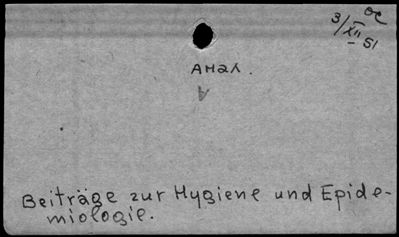 3/XII - 51
Анал.
Beiträge zur Hygiene und Epide-
miologie.